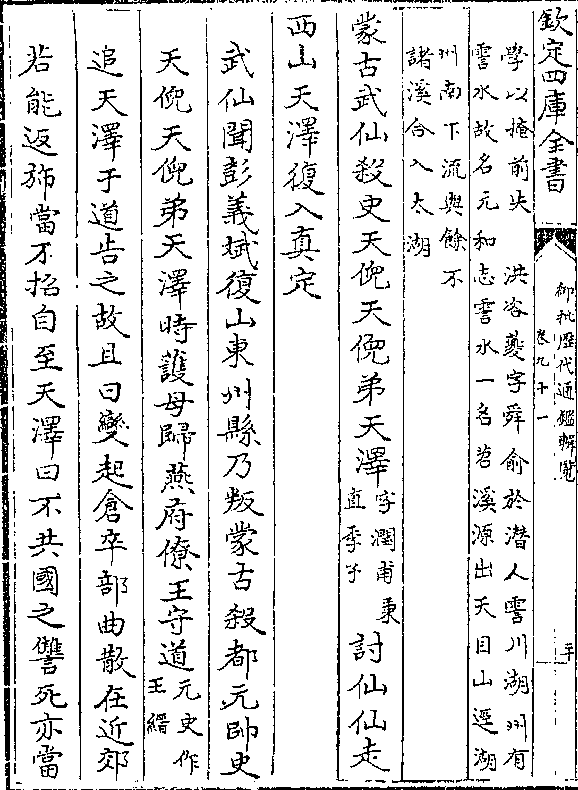 欽定四庫全書
御批歷代通鑑輯覽
卷九十一
三十
學以掩前失　洪咨夔字舜俞於潛人霅川湖州有
霅水故名元和志霅水一名苕溪源出天目山逕湖
州南下流與餘不
諸溪合入太湖
蒙古武仙殺史天倪天倪弟天澤字潤甫秉直季子討仙仙走
西山天澤復入真定
武仙聞彭義斌復山東州縣乃叛蒙古殺都元帥史
天倪天倪弟天澤時護母歸燕府僚王守道元史作王縉
追天澤于道告之故且曰變起倉卒部曲散在近郊
若能返旆當不招自至天澤曰不共國之讐死亦當